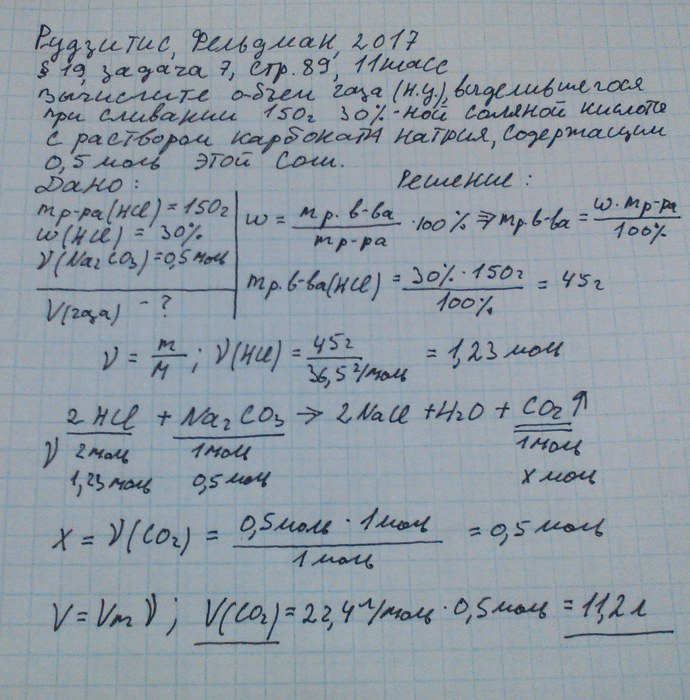 Рудзитис, Фельдман, 2017
§ 19, задача 7, стр. 89, 11класс
Вычислите объем газа (н.у.), выделившегося
при сливании 150г 30%-ной соляной кислоты
с раствором карбоната натрия, содержащим
0,5 моль этой соли.
Дано: Решение:
mр-ра(HCl) = 150г
w(HCl) = 30%
ν(Na₂CO₃) = 0,5 моль
V(газа) - ?
w = mр.в-ва / mр-ра · 100% ⇒ mр.в-ва = w · mр-ра / 100%
mр.в-ва(HCl) = 30% · 150г / 100% = 45г
ν = m / M ; ν(HCl) = 45г / 36,5 г/моль = 1,23 моль
2HCl + Na₂CO₃ → 2NaCl + H₂O + CO₂↑
ν 2моль 1моль 1моль
1,23моль 0,5моль x моль
x = ν(CO₂) = 0,5моль · 1моль / 1моль = 0,5 моль
V = Vm ν ; V(CO₂) = 22,4 л/моль · 0,5моль = 11,2 л